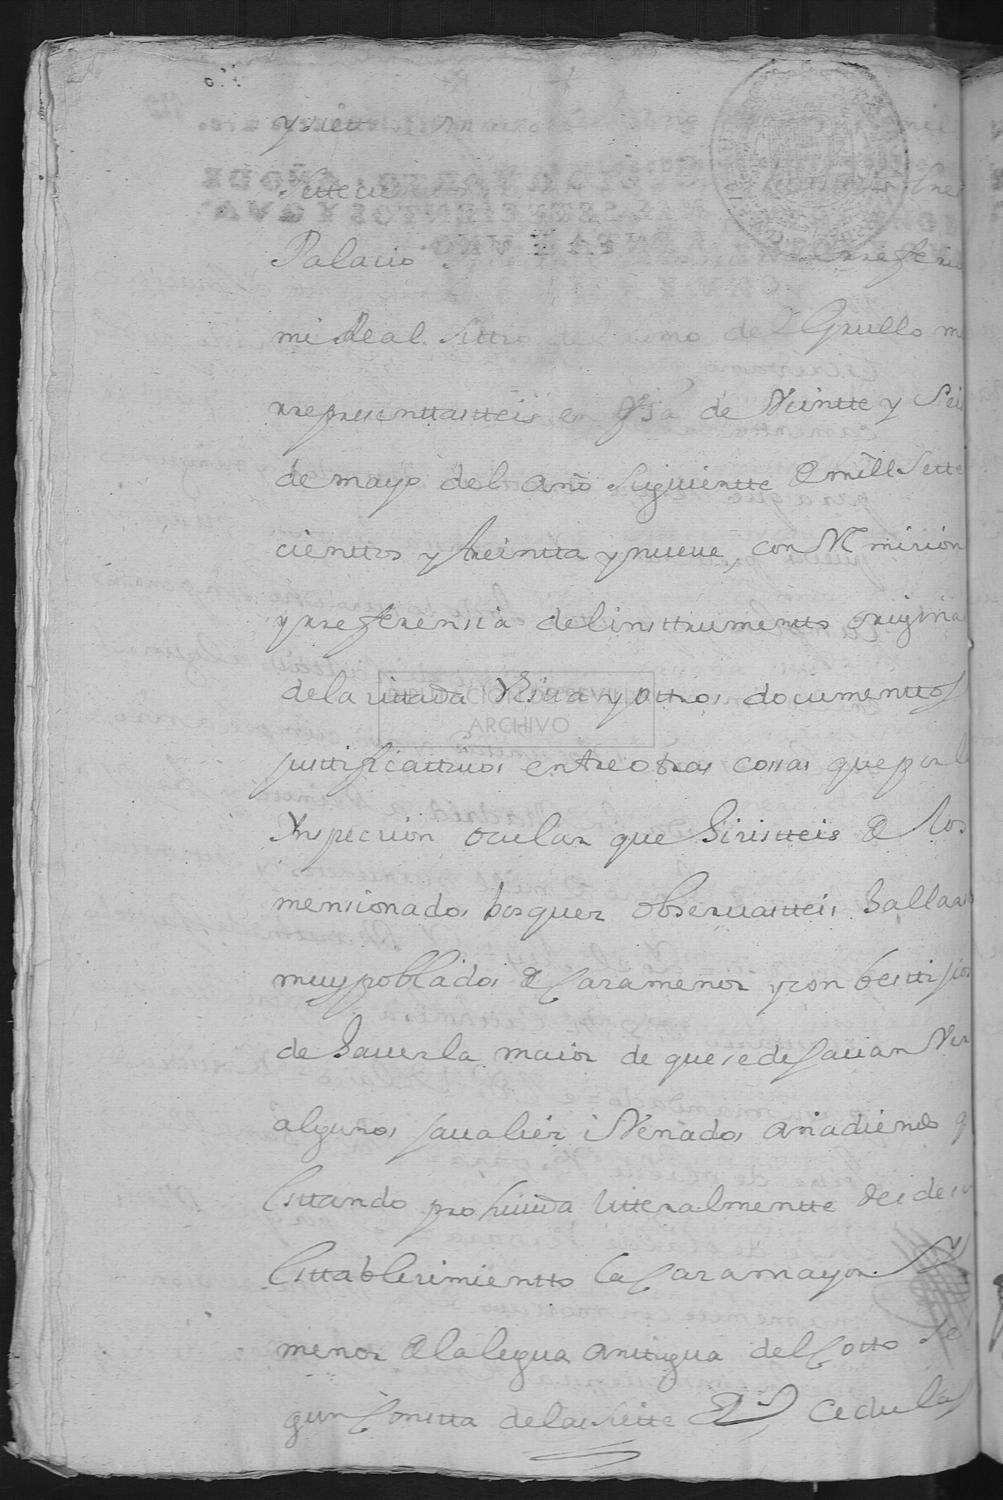 y siett
Settecie
Palacio
mi Real Sittio del Lomo del Grullo m
rrepresenttastteis en Vistta de Veintte y Seis
de mayo del año siguientte de mill Sette
cienttos y treintta y nueve, con Rmision
y rreferensia del insttrumentto origina
de la cittada Vistta y ottros documenttos
justtificattivos entre otras cossas que por la
Ynspeccion ocular que hisistteis de los
mensionados bosques observastteis hallarse
muy poblados de Casa menor y con besttijios
de haverla maior de que se dejavan Ver
algunos javalies i Venados añadiendo q
Esttando prohivida litteralmentte desde su
Esttablesimientto la Casa mayor y
menor de la legua anttigua del Cotto se
gun Constta de las siette Rs Cedulas
DIPUTACIÓN DE SEVILLA
ARCHIVO